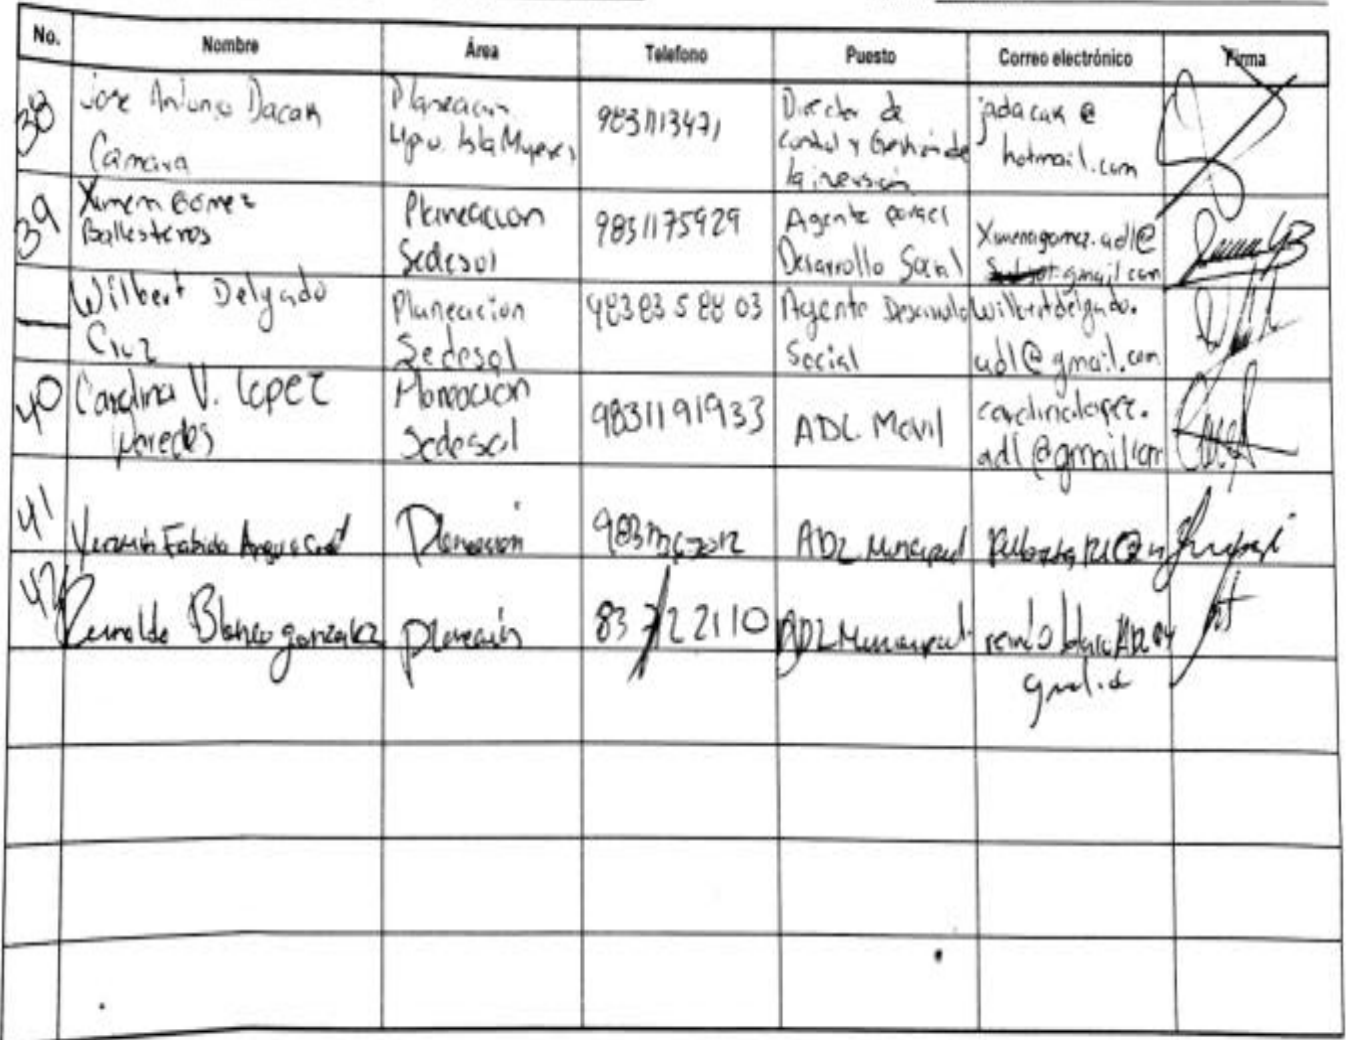 No. Nombre Área Telefono Puesto Correo electrónico Firma
38 Jose Antonio Dacak Cámara Planeación Mpio. Isla Mujeres 9831113471 Director de Control y Gestión de la inversión jadacak@hotmail.com
39 Ximena Gómez Ballesteros Planeacion Sedesol 9831175929 Agente para el Desarrollo Social Ximenagomez.adl@gmail.com
Wilbert Delgado Cruz Planeacion Sedesol 9838358803 Agente Desarrollo Social wilbertdelgado.adl@gmail.com
40 Carolina V. Lopez Paredes Planeación Sedesol 9831191933 ADL Movil carolinalopez.adl@gmail.com
41 Fabiola Planeación ADL Municipal
42 Blanco gonzalez planeación 83 722110 ADL Municipal